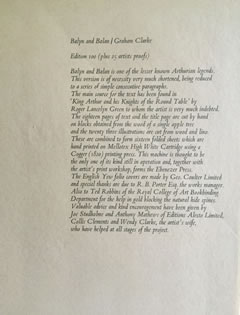 Balyn and Balan / Graham Clarke
Edition 100 (plus 25 artists proofs)
Balyn and Balan is one of the lesser known Arthurian legends.
This version is of necessity very much shortened, being reduced
to a series of simple consecutive paragraphs.
The main source for the text has been found in
'King Arthur and his Knights of the Round Table' by
Roger Lancelyn Green to whom the artist is very much indebted.
The eighteen pages of text and the title page are cut by hand
on blocks obtained from the wood of a single apple tree
and the twenty three illustrations are cut from wood and lino.
These are combined to form sixteen folded sheets which are
hand printed on Mellotex High White Cartridge using a
Cogger (1820) printing press. This machine is thought to be
the only one of its kind still in operation and, together with
the artist's print workshop, forms the Ebenezer Press.
The English Yew folio covers are made by Geo. Coulter Limited
and special thanks are due to R. B. Porter Esq. the works manager.
Also to Ted Robbins of the Royal College of Art Bookbinding
Department for the help in gold blocking the natural hide spines.
Valuable advice and kind encouragement have been given by
Joe Studholme and Anthony Mathews of Editions Alecto Limited,
Callis Clements and Wendy Clarke, the artist's wife,
who have helped at all stages of the project.